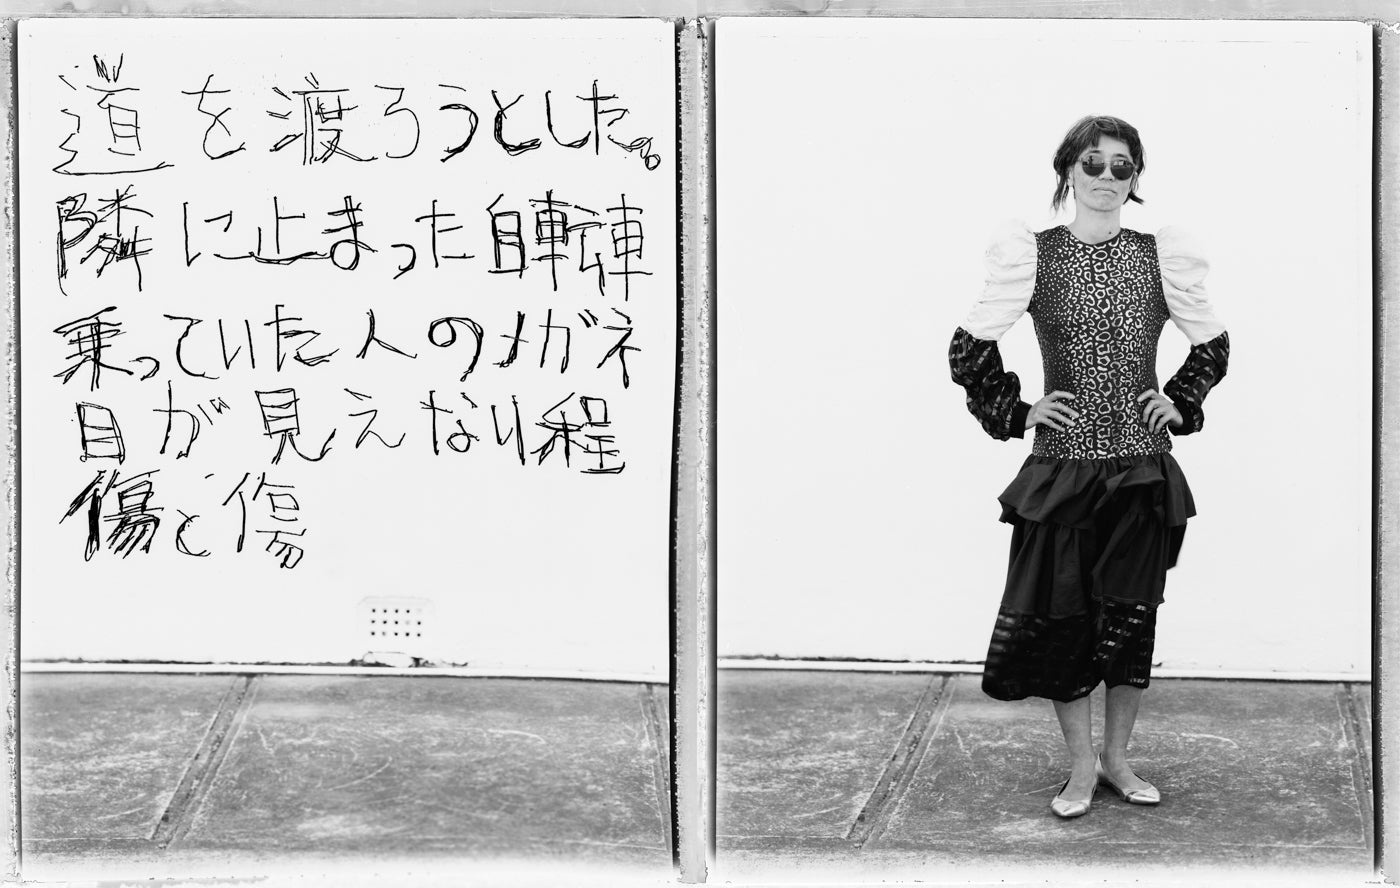 道を渡ろうとした。
隣に止まった自転車
乗っていた人のメガネ
目が見えなり程
傷と傷